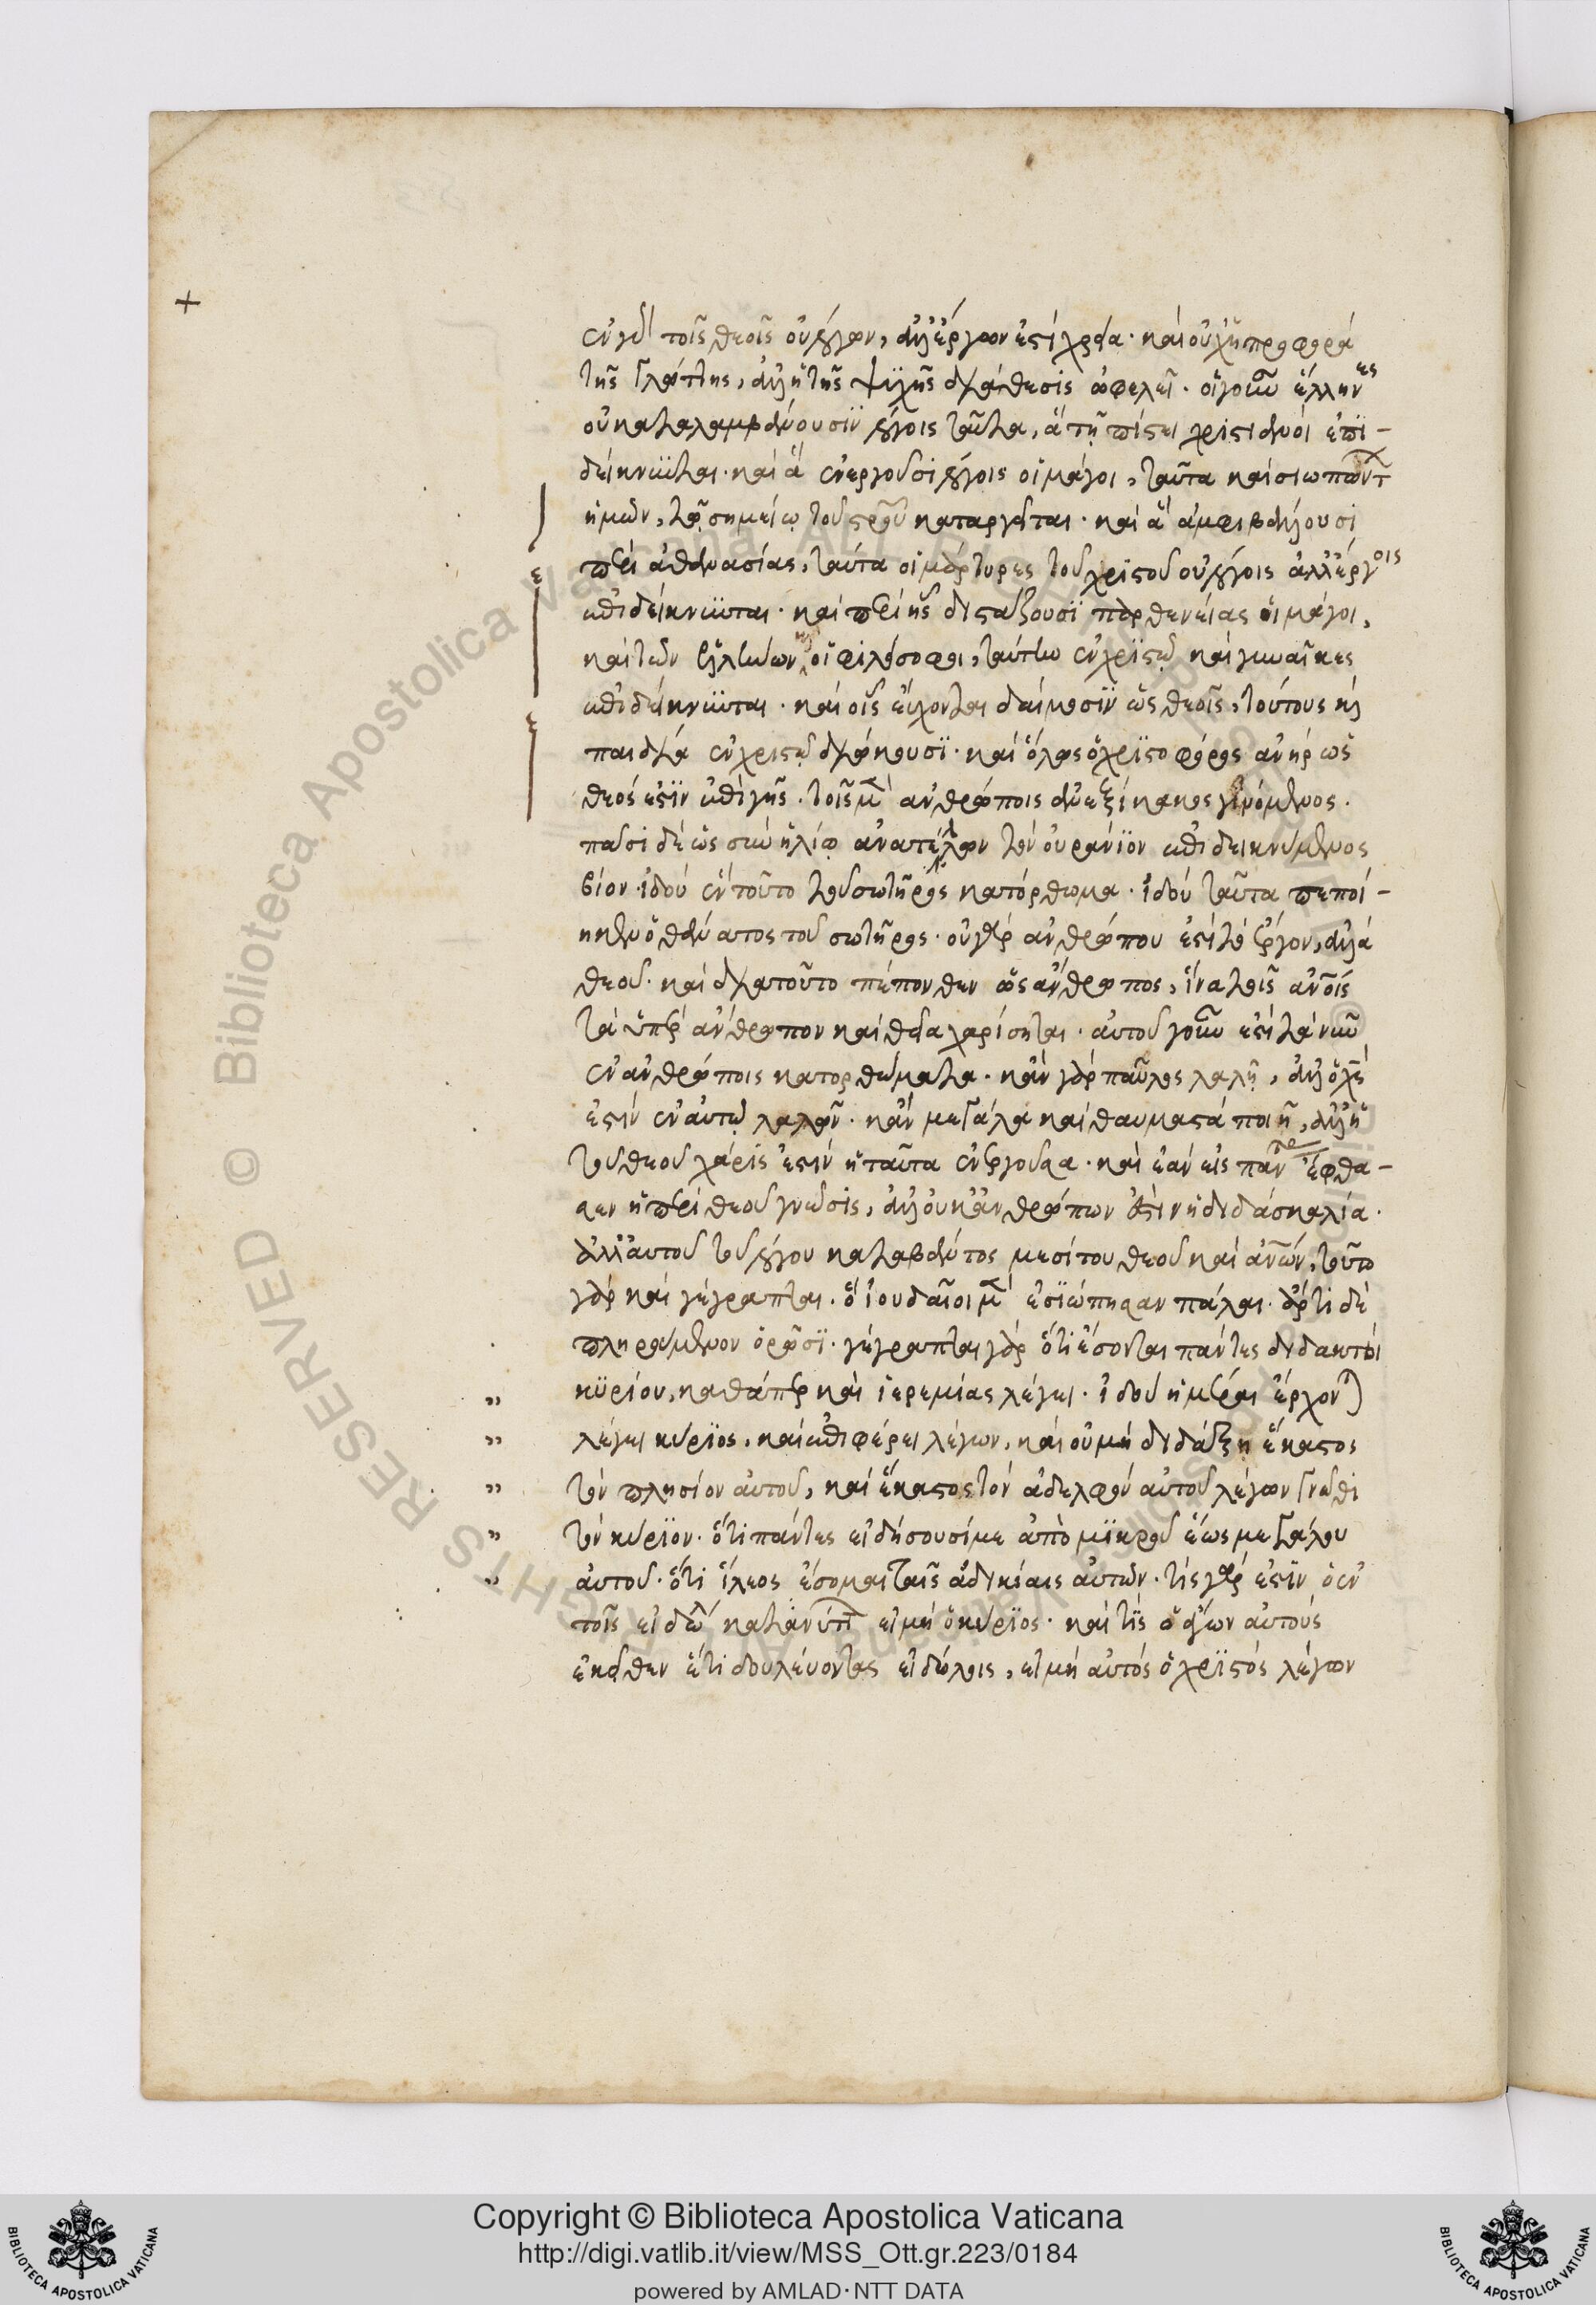 +
ἐν γὰρ τοῖς θεοῖς οὐ λόγων, ἀλλ' ἔργων ἐστὶ χρεία· καὶ οὐχ ἡ προφορὰ
τῆς γλώττης, ἀλλ' ἡ τῆς ψυχῆς διάθεσις ὠφελεῖ. οἱ γοῦν ἕλληνες
οὐ καταλαμβάνουσιν λόγοις ταῦτα, ἃ τῇ πίστει χριστιανοὶ ἐπι-
δείκνυται· καὶ ἃ ἐνεργοῦσι λόγοις οἱ μάγοι, ταῦτα καὶ σιωπώντ
ἡμῶν, τῷ σημείῳ τοῦ σταυροῦ καταργεῖται· καὶ ἃ ἀμφιβάλλουσι
περὶ ἀθανασίας, ταῦτα οἱ μάρτυρες τοῦ χριστοῦ οὐ λόγοις ἀλλ' ἔργοις
ἐπιδείκνυται· καὶ περὶ ἧς διστάζουσι παρθενείας οἱ μάγοι,
καὶ τῶν ἑλλήνων οἱ φιλόσοφοι, ταύτην ἐν χριστῷ καὶ γυναῖκες
ἐπιδείκνυται· καὶ οἷς εὔχονται δαίμοσιν ὡς θεοῖς, τούτους καὶ
παιδία ἐν χριστῷ διώκουσι· καὶ ὅλως ὁ χριστοφόρος ἀνὴρ ὡς
θεός ἐστιν ἐπὶ γῆς· τοῖς μὲν ἀνθρώποις ἀνεξίκακος γινόμενος·
πᾶσι δὲ ὡς σὺν ἡλίῳ ἀνατέλλων τὸν οὐράνιον ἐπιδεικνύμενος
βίον· ἰδοὺ ἓν τοῦτο τοῦ σωτῆρος κατόρθωμα· ἰδοὺ ταῦτα πεποί-
ηκεν ὁ θάνατος τοῦ σωτῆρος· οὐ γὰρ ἀνθρώπου ἐστὶ τὸ ἔργον, ἀλλὰ
θεοῦ· καὶ διὰ τοῦτο πέπονθεν ὡς ἄνθρωπος, ἵνα τοῖς ἀνοις
τὰ ὑπὲρ ἄνθρωπον καὶ θεῖα χαρίσηται· αὐτοῦ γοῦν ἐστὶ τὰ νῦν
ἐν ἀνθρώποις κατορθώματα· κἂν γὰρ παῦλος λαλῇ, ἀλλ' ὁ χς
ἐστὶν ἐν αὐτῷ λαλῶν· κἂν μεγάλα καὶ θαυμαστὰ ποιῇ, ἀλλ' ἡ
τοῦ θεοῦ χάρις ἐστὶν ἡ ταῦτα ἐνεργοῦσα· καὶ ἐὰν εἰς παντ ἔφθα-
σεν ἡ περὶ θεοῦ γνῶσις, ἀλλ' οὐκ ἀνθρώπων ἐστὶν ἡ διδασκαλία·
ἀλλ' αὐτοῦ τοῦ λόγου καταβάντος μεσίτου θεοῦ καὶ ἀνων, τοῦτο
γὰρ καὶ γέγραπται· ὃ ἰουδαῖοι μὲν ἐσιώπησαν πάλαι· ἄρτι δὲ
πληρούμενον ὁρῶσι· γέγραπται γὰρ ὅτι ἔσονται πάντες διδακτοὶ
κυρίου, καθάπερ καὶ ἱερεμίας λέγει· ἰδοὺ ἡμέραι ἔρχονται
λέγει κύριος, καὶ ἐπιφέρει λέγων, καὶ οὐ μὴ διδάξῃ ἕκαστος
τὸν πλησίον αὐτοῦ, καὶ ἕκαστος τὸν ἀδελφὸν αὐτοῦ λέγων γνῶθι
τὸν κύριον· ὅτι πάντες εἰδήσουσί με ἀπὸ μικροῦ ἕως μεγάλου
αὐτοῦ· ὅτι ἵλεος ἔσομαι ταῖς ἀδικίαις αὐτῶν· τίς γάρ ἐστιν ὁ ἐν
τοῖς εἰδώλ εἰ μὴ ὁ κύριος· καὶ τίς ὁ αὐτοὺς
ἐκεῖθεν ἔτι δουλεύοντας εἰδώλοις, εἰ μὴ αὐτὸς ὁ χριστὸς λέγων
© Biblioteca Apostolica Vaticana ALL RIGHTS RESERVED
Copyright © Biblioteca Apostolica Vaticana
http://digi.vatlib.it/view/MSS_Ott.gr.223/0184
powered by AMLAD·NTT DATA
BIBLIOTECA APOSTOLICA VATICANA
BIBLIOTECA APOSTOLICA VATICANA